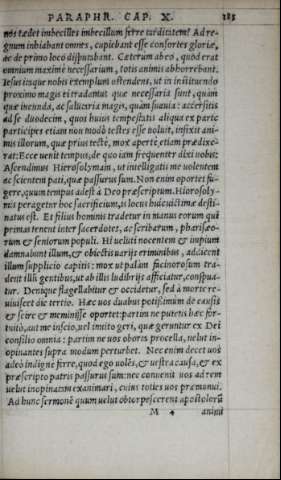 PARAPHR. CAP. X. 185
nos tædet imbecilles imbecillum ferre tarditatem? Ad re-
gnum inhiabant omnes, cupiebant esse consortes gloriæ,
ac de primo loco disputabant. Cæterum ab eo, quod erat
omnium maxime necessarium, totis animis abhorrebant.
Iesus itaque nobis exemplum ostendens, ut in instituendo
proximo magis ei tradamus quæ necessaria sunt, quàm
quæ iucunda, ac salutaria magis, quàm suauia: accersitis
ad se duodecim, quos huius tempestatis aliqua ex parte
participes etiam non modò testes esse uoluit, infixit ani-
mis illorum, quæ prius tectè, mox apertè etiam prædixe-
rat: Ecce uenit tempus, de quo iam frequenter dixi uobis:
Ascendimus Hierosolymam, ut intelligatis me uolentem
ac scientem pati, quæ passurus sum. Non enim oportet fu-
gere, quum tempus adest à Deo præscriptum. Hierosoly-
mis peragetur hoc sacrificium, is locus huic uictimæ desti-
natus est. Et filius hominis tradetur in manus eorum qui
primas tenent inter sacerdotes, ac scribarum, pharisæo-
rum & seniorum populi. Hi uelut nocentem & impium
damnabunt illum, & obiectis uarijs criminibus, addicent
illum supplicio capitis: mox ut palàm facinorosum tra-
dent illi gentibus, ut ab illis ludibrijs afficiatur, conspua-
tur. Denique flagellabitur & occidetur, sed à morte re-
uiuiscet die tertio. Hæc uos duabus potissimum de causis
& scire & meminisse oportet: partim ne putetis hæc for-
tuitò, aut me inscio, uel inuito geri, quæ geruntur ex Dei
consilio omnia: partim ne uos oborta procella, uelut in-
opinantes supra modum perturbet. Nec enim decet uos
adeò indigne ferre, quod ego uolēs, & uestra causa, & ex
præscripto patris passurus sum: nec conuenit uos ad rem
uelut inopinatam exanimari, cuius toties uos præmonui.
Ad hunc sermonē quum uelut obtorpescerent apostolorū
M 4 animi